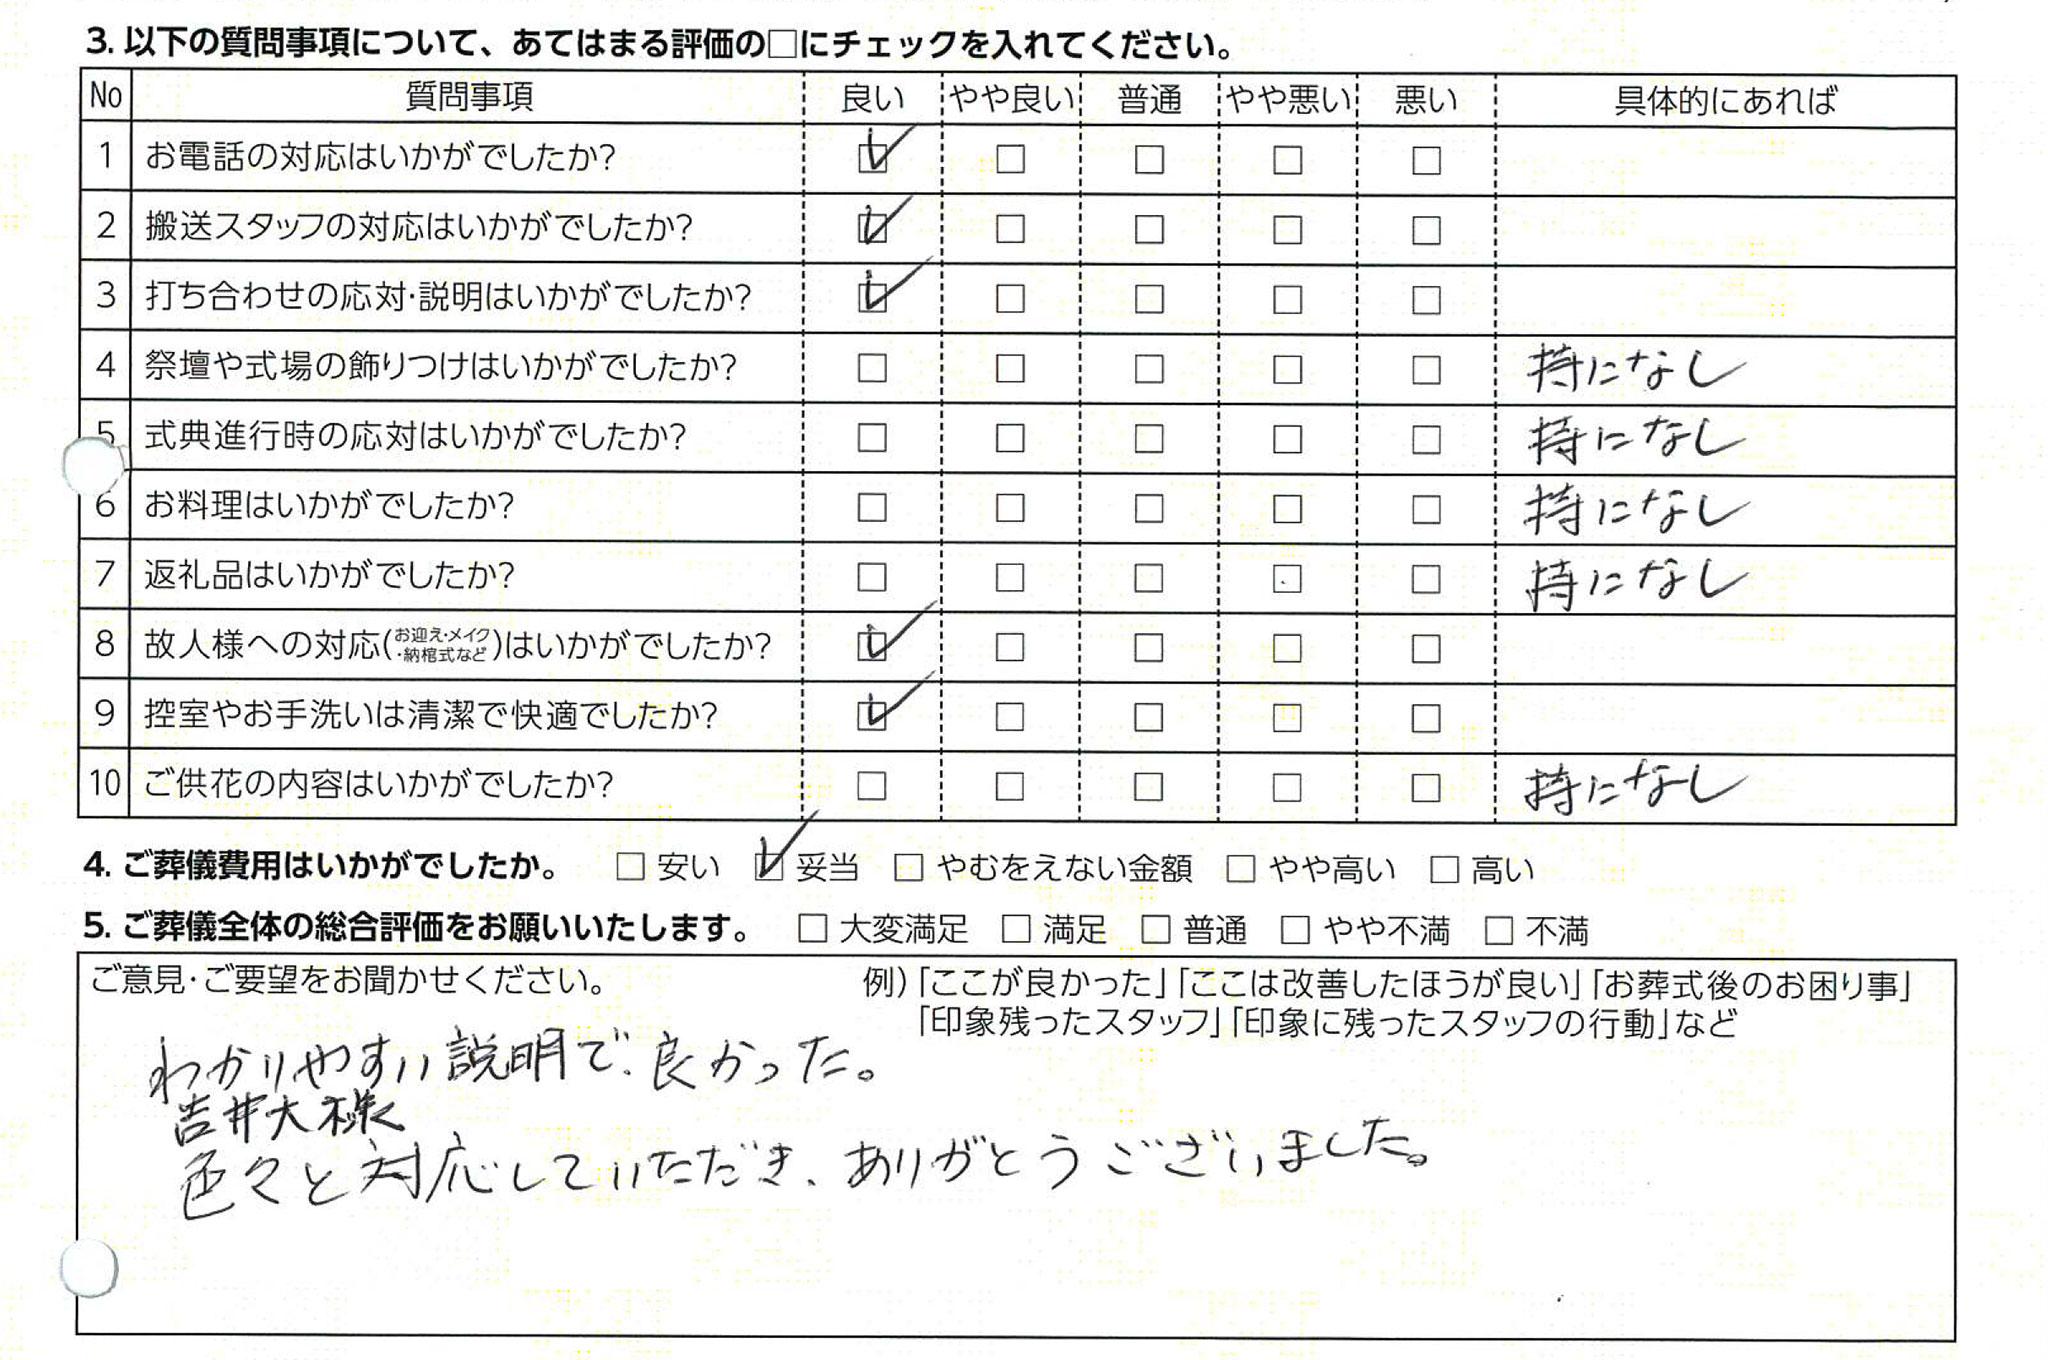 3. 以下の質問事項について、あてはまる評価の□にチェックを入れてください。
No 質問事項 良い やや良い 普通 やや悪い 悪い 具体的にあれば
1 お電話の対応はいかがでしたか? ☑ □ □ □ □
2 搬送スタッフの対応はいかがでしたか? ☑ □ □ □ □
3 打ち合わせの応対・説明はいかがでしたか? ☑ □ □ □ □
4 祭壇や式場の飾りつけはいかがでしたか? □ □ □ □ □ 持になし
5 式典進行時の応対はいかがでしたか? □ □ □ □ □ 持になし
6 お料理はいかがでしたか? □ □ □ □ □ 持になし
7 返礼品はいかがでしたか? □ □ □ □ □ 持になし
8 故人様への対応(お迎え・メイク・納棺式など)はいかがでしたか? ☑ □ □ □ □
9 控室やお手洗いは清潔で快適でしたか? ☑ □ □ □ □
10 ご供花の内容はいかがでしたか? □ □ □ □ □ 持になし
4. ご葬儀費用はいかがでしたか。 □ 安い ☑ 妥当 □ やむをえない金額 □ やや高い □ 高い
5. ご葬儀全体の総合評価をお願いいたします。 □ 大変満足 □ 満足 □ 普通 □ やや不満 □ 不満
ご意見・ご要望をお聞かせください。 例)「ここが良かった」「ここは改善したほうが良い」「お葬式後のお困り事」
「印象残ったスタッフ」「印象に残ったスタッフの行動」など
わかりやすい説明で、良かった。
吉井大様
色々と対応していただき、ありがとうございました。